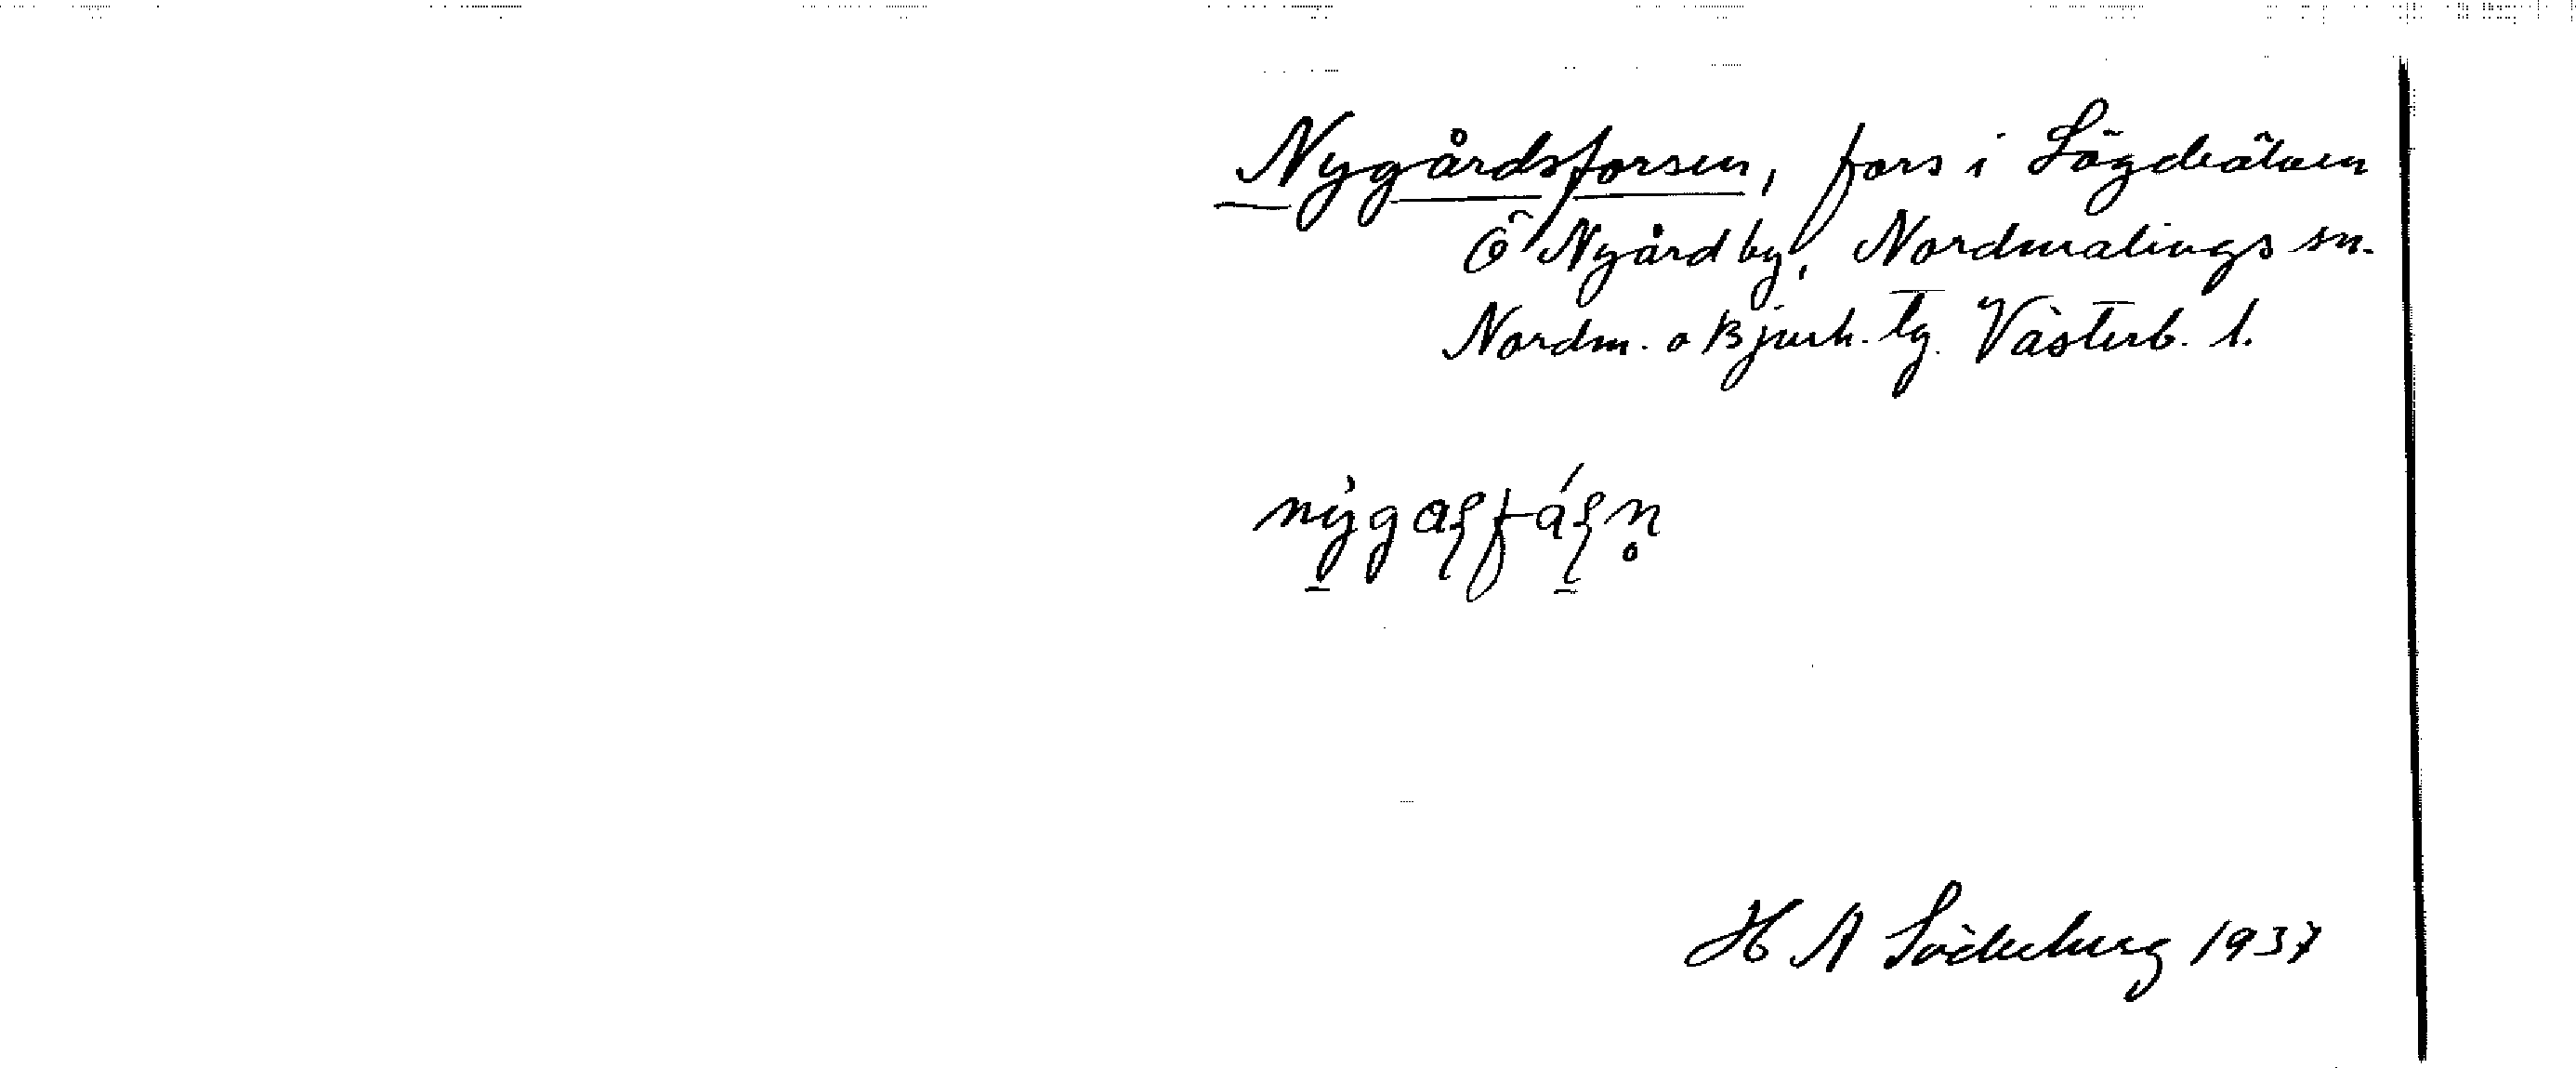 Nygårdsforsen, fors i Lögdeälven
Ö Nyård by, Nordmalings sn.
Nordm. o Bjurh. tg. Västerb. l.
H A Söderberg 1937